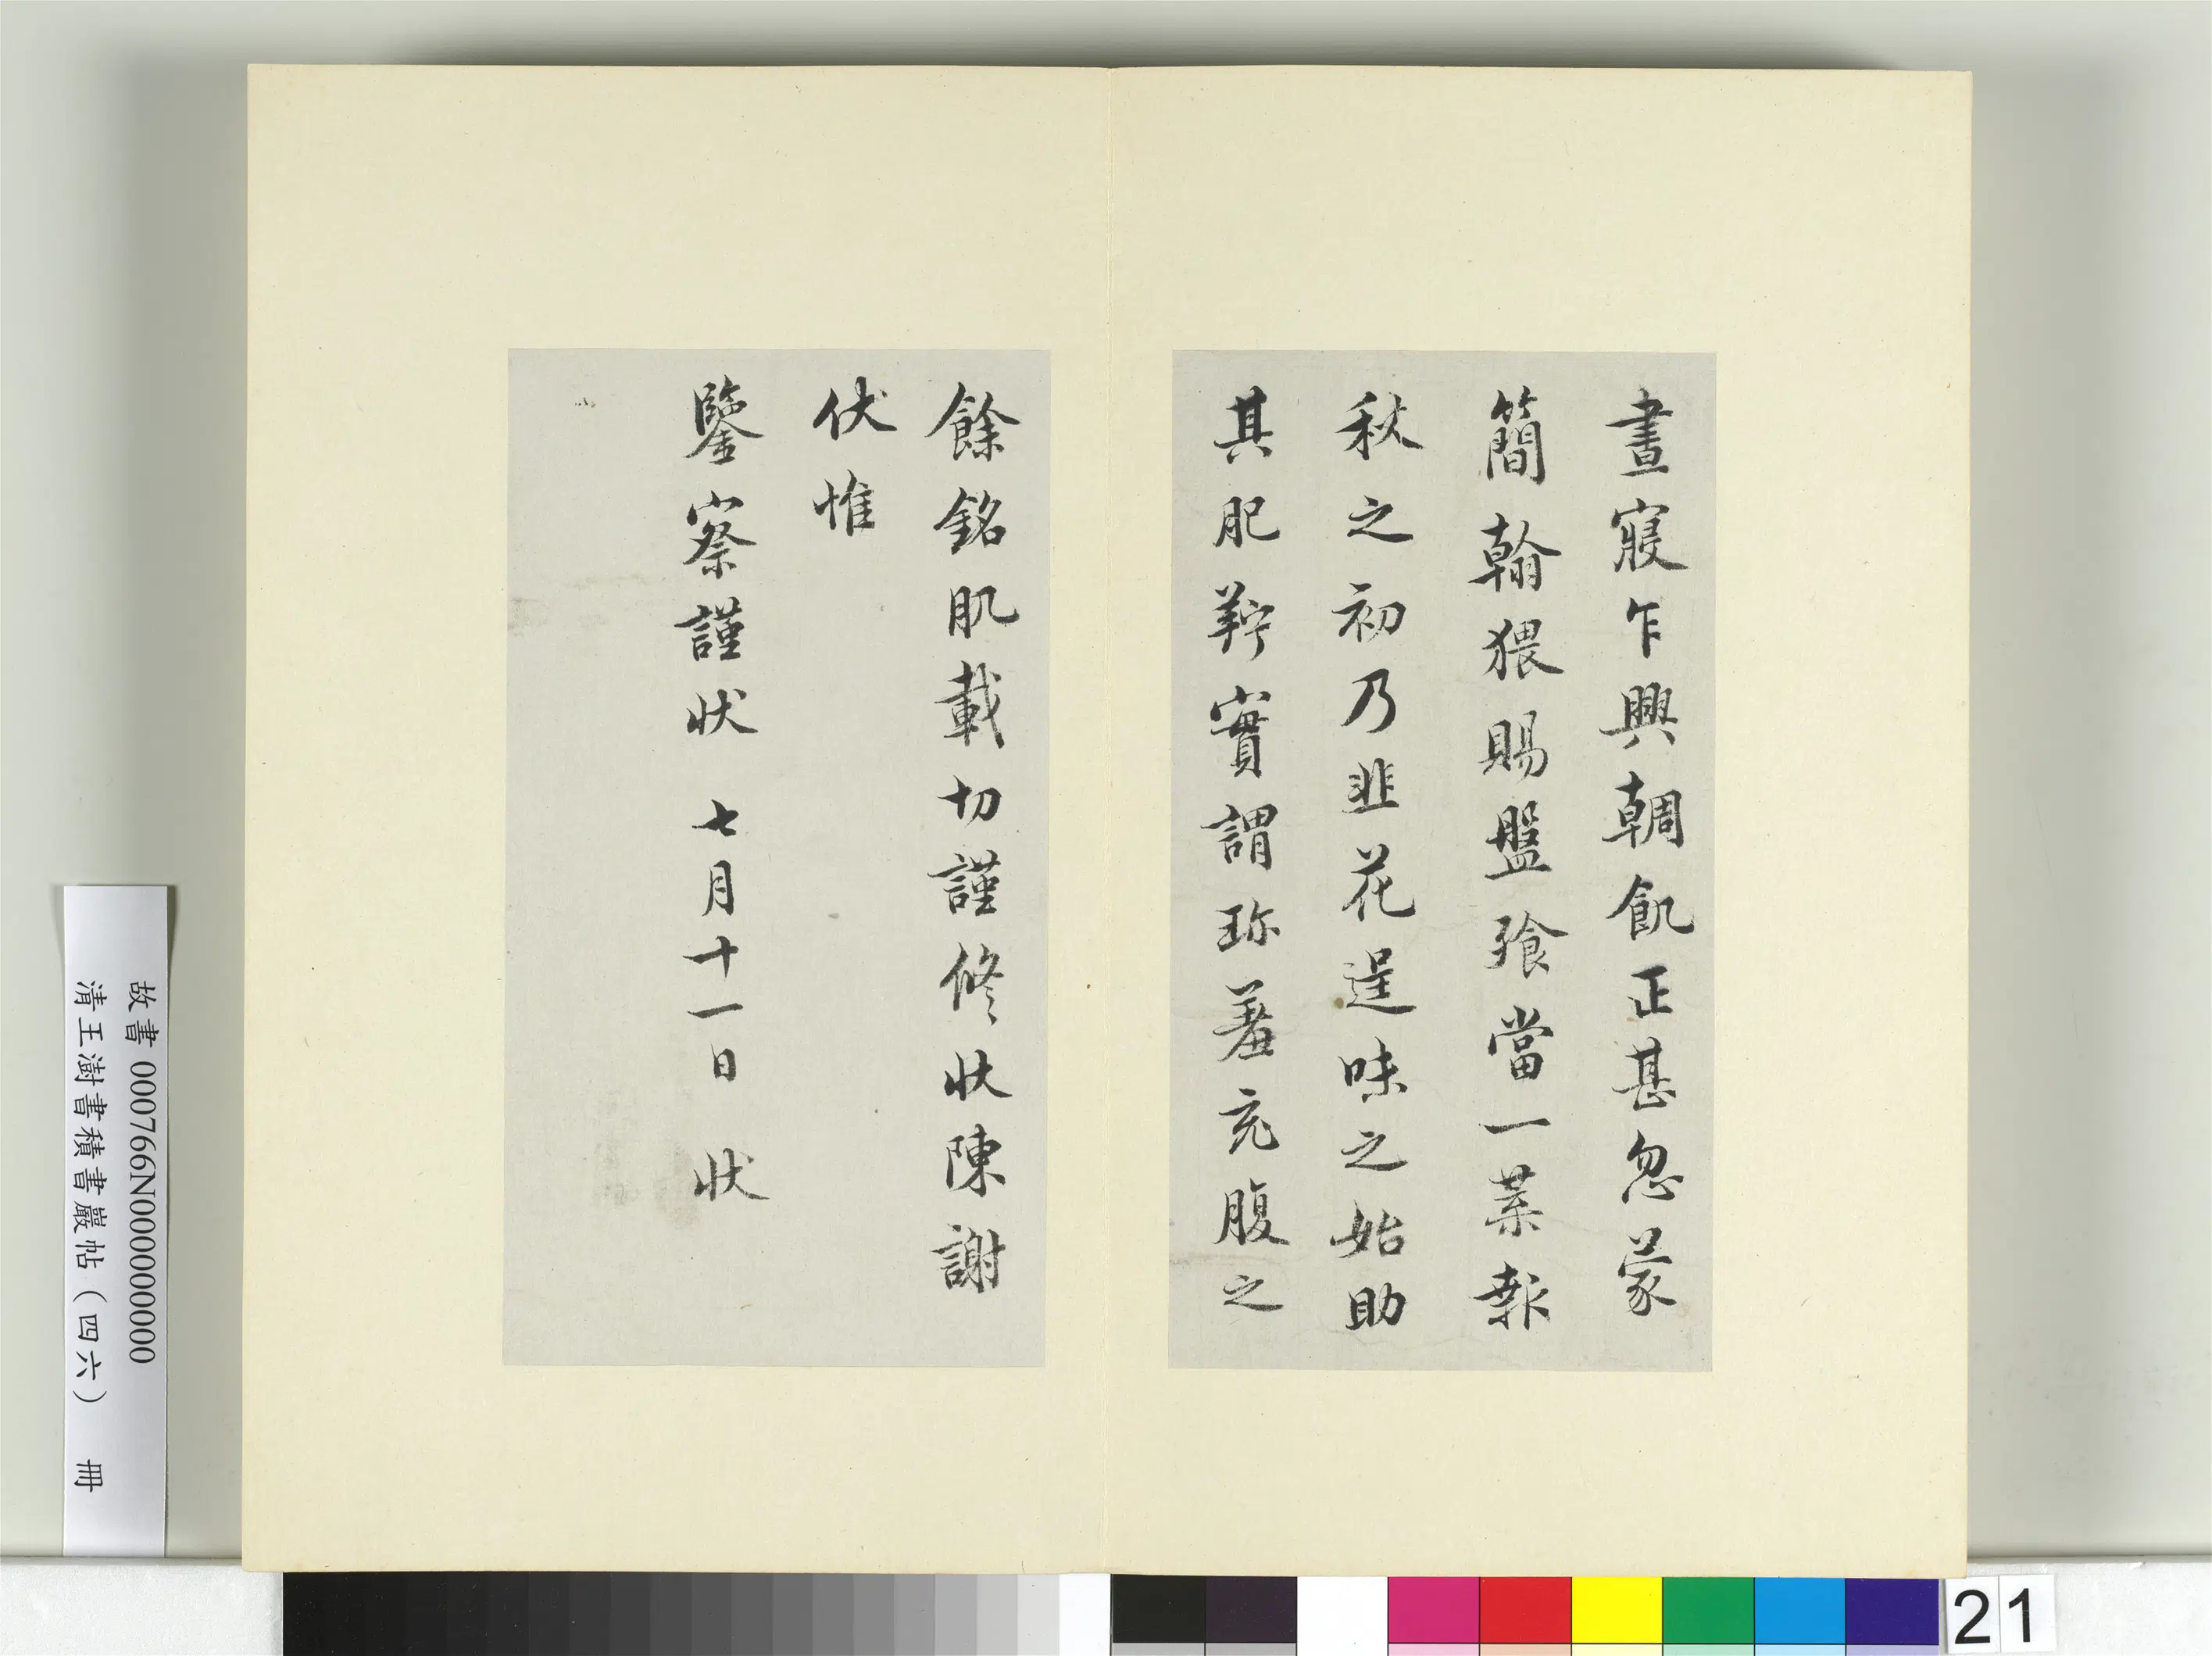 晝寢乍興輖飢正甚忽蒙
簡翰猥賜盤飱當一葉報
秋之初乃韭花逞味之始助
其肥羜實謂珍羞充腹之
餘銘肌載切謹修狀陳謝
伏惟
鑒察謹狀 七月十一日 狀
故書 000766N000000000
清王澍書積書巖帖（四六） 冊
21